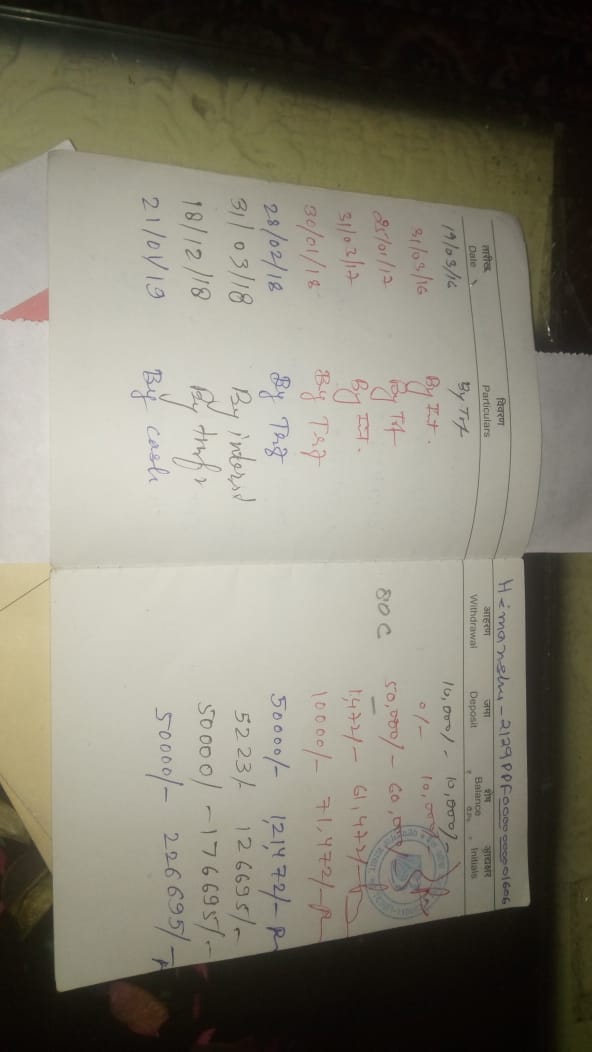 Himanshu - 2129PPF0000000001606
तारीख विवरण आहरण जमा शेष आद्याक्षर
Date Particulars Withdrawal Deposit Balance Initials
19/03/16 By Trf 10,000/- 10,000/-
31/03/16 By Int. 0/- 10,000/-
25/01/17 By Trf 80C 50,000/- 60,000/-
31/03/17 By Int. 1,472/- 61,472/-
30/01/18 By Trf 10000/- 71,472/-
28/02/18 By Trf 50000/- 1,21,472/-
31/03/18 By interest 5223/- 126695/-
18/12/18 By trnfr 50000/- 176695/-
21/01/19 By cash 50000/- 226695/-